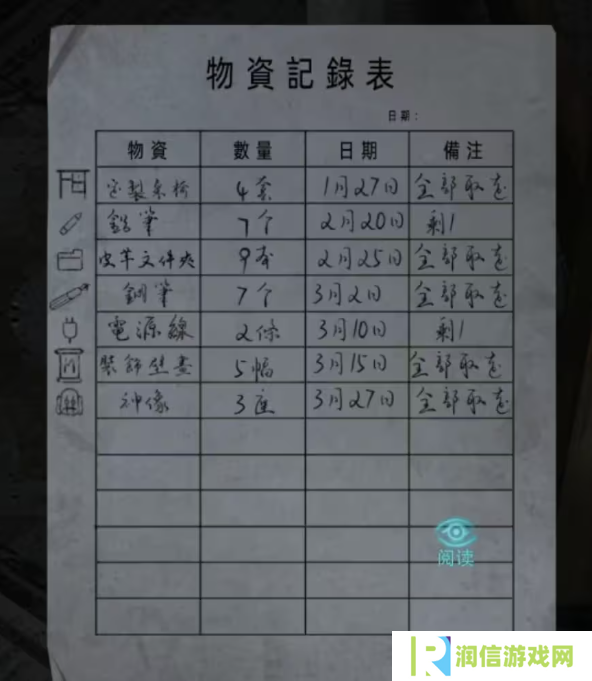 物資記錄表
日期：
物資 數量 日期 備注
定製桌椅 4套 1月27日 全部取走
鉛筆 7个 2月20日 剩1
皮革文件夾 9本 2月25日 全部取走
鋼筆 7个 3月2日 全部取走
電源線 2條 3月10日 剩1
裝飾壁畫 5幅 3月15日 全部取走
神像 3座 3月27日 全部取走
阅读
润信游戏网